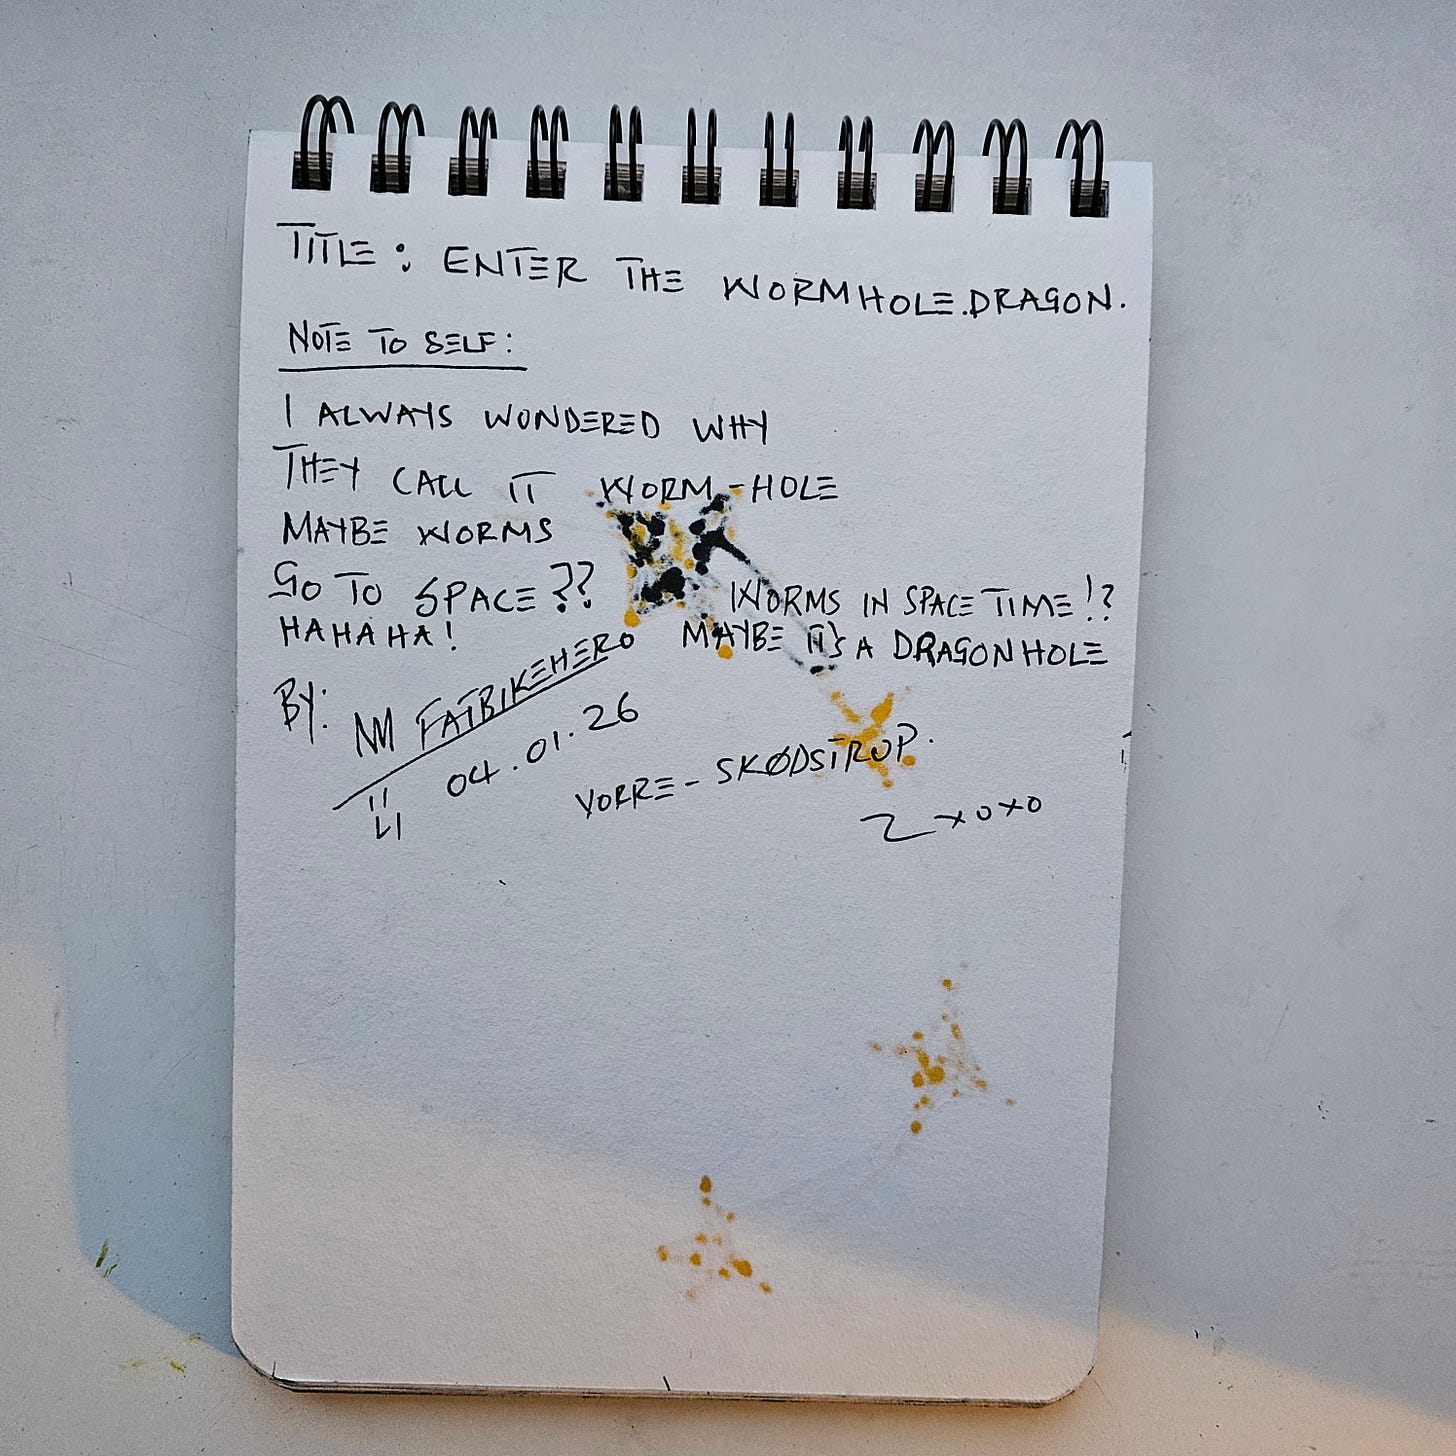 TITLE: ENTER THE WORMHOLE.DRAGON.
NOTE TO SELF:
I ALWAYS WONDERED WHY
THEY CALL IT WORM-HOLE
MAYBE WORMS
GO TO SPACE??
HAHAHA!
WORMS IN SPACE TIME!?
MAYBE IT'S A DRAGONHOLE
BY: FATBIKEHERO
04.01.26
VORRE - SKØDSTRUP.
XOXO